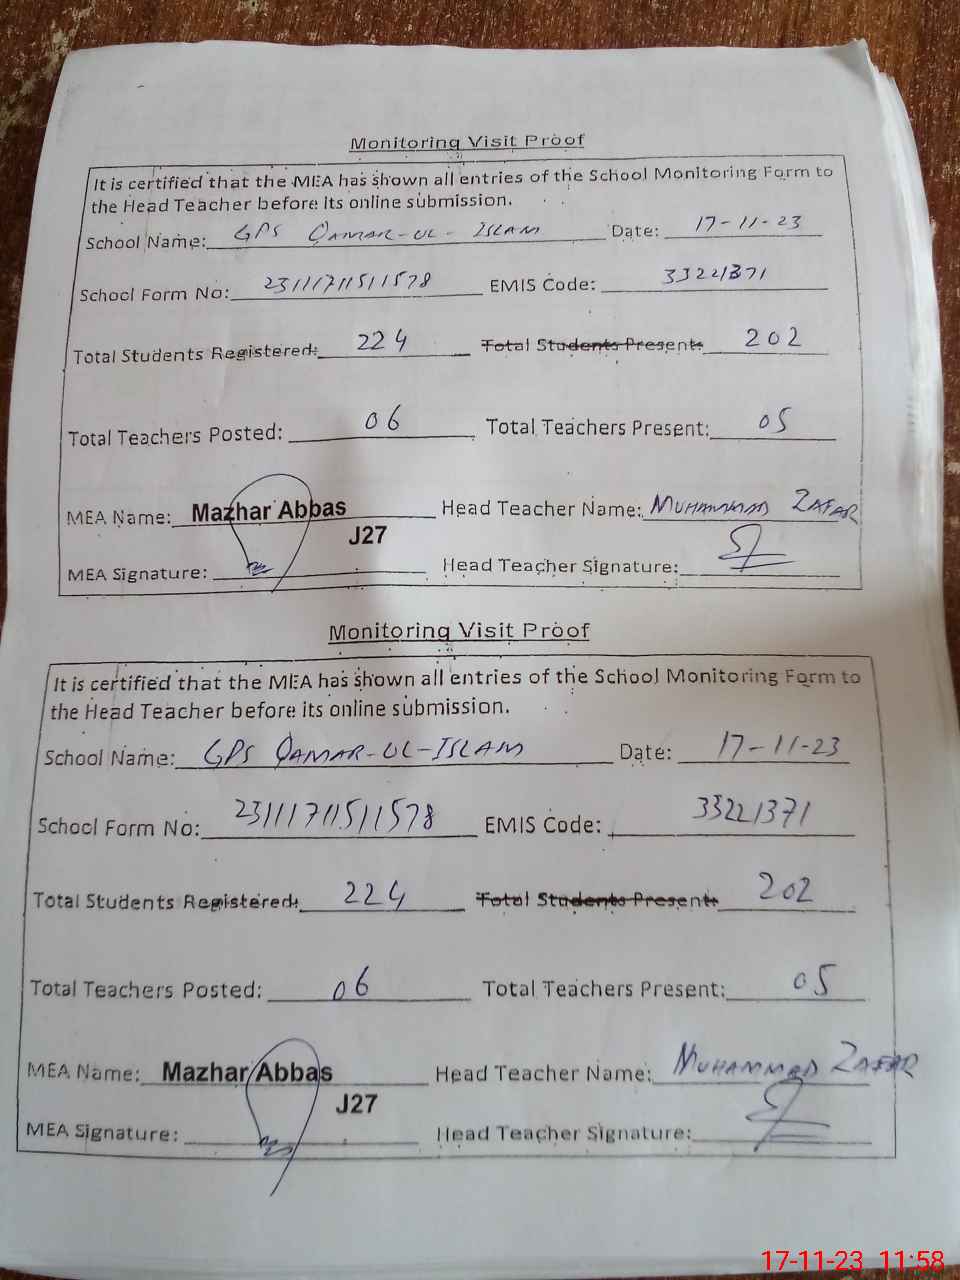 Monitoring Visit Proof
It is certified that the MEA has shown all entries of the School Monitoring Form to
the Head Teacher before its online submission.
School Name: GPS QAMAR-UL-ISLAM Date: 17-11-23
School Form No: 23111711511578 EMIS Code: 33221371
Total Students Registered: 224 Total Students Present: 202
Total Teachers Posted: 06 Total Teachers Present: 05
MEA Name: Mazhar Abbas Head Teacher Name: MUHAMMAD ZAFAR
J27
MEA Signature: Head Teacher Signature:
Monitoring Visit Proof
It is certified that the MEA has shown all entries of the School Monitoring Form to
the Head Teacher before its online submission.
School Name: GPS QAMAR-UL-ISLAM Date: 17-11-23
School Form No: 23111711511578 EMIS Code: 33221371
Total Students Registered: 224 Total Students Present: 202
Total Teachers Posted: 06 Total Teachers Present: 05
MEA Name: Mazhar Abbas Head Teacher Name: MUHAMMAD ZAFAR
J27
MEA Signature: Head Teacher Signature:
17-11-23 11:58